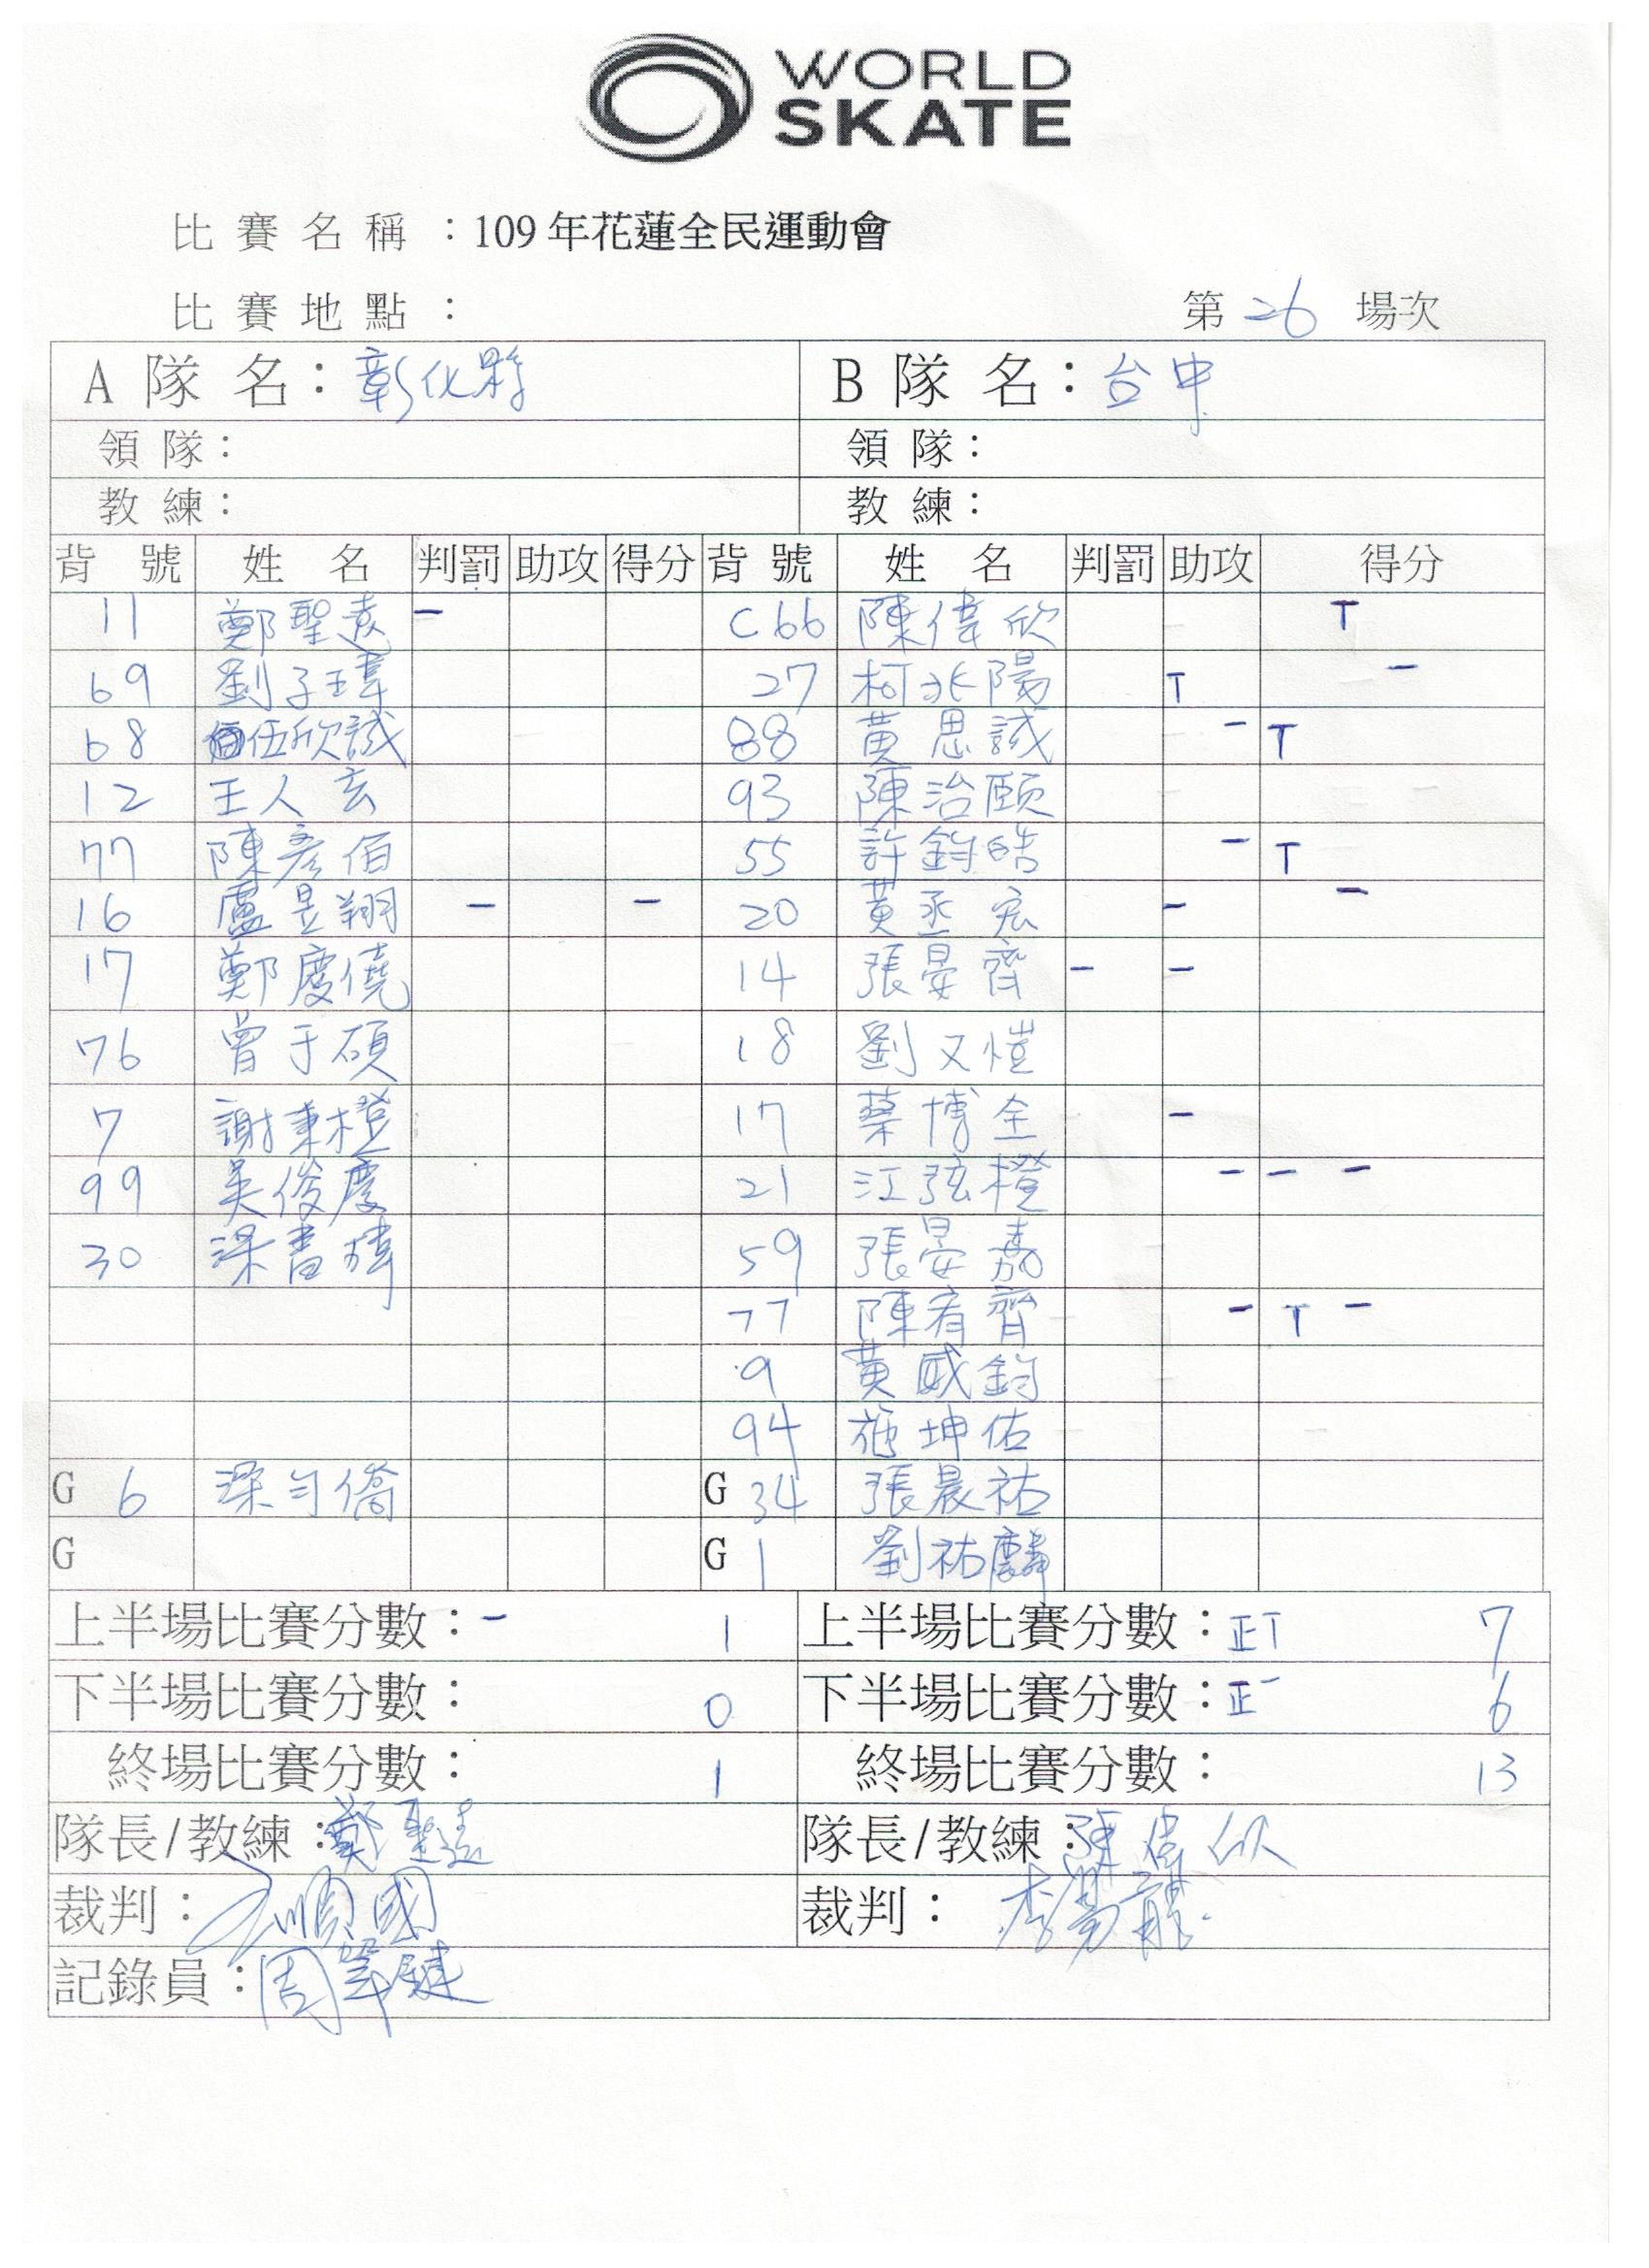 WORLD
SKATE
比賽名稱：109年花蓮全民運動會
比賽地點：
第 26 場次
A 隊名：彰化縣 B 隊名：台中
領隊： 領隊：
教練： 教練：
背號 姓名 判罰 助攻 得分 背號 姓名 判罰 助攻 得分
11 鄭聖遠 一 C66 陳偉欣 T
69 劉子瑋 27 柯兆陽 T 一
68 伍欣誠 88 黃思誠 一 T
12 王人玄 93 陳治頤
77 陳彥佰 55 許鈞皓 一 T
16 盧昱翔 一 一 20 黃丞宏 一 一
17 鄭慶僥 14 張晏齊 一 一
76 曾于碩 18 劉又愷
7 謝秉橙 17 蔡博全 一
99 吳俊慶 21 江弦橙 一 一 一
30 梁書瑋 59 張晏嘉
77 陳宥齊 一 T 一
9 黃威鈞
94 施坤佑
G 6 梁勻僑 G 34 張晨祐
G G 1 劉祐麟
上半場比賽分數：一 1 上半場比賽分數：正T 7
下半場比賽分數： 0 下半場比賽分數：正一 6
終場比賽分數： 1 終場比賽分數： 13
隊長/教練：鄭聖遠 隊長/教練：陳偉欣
裁判： 順國 裁判：
記錄員：周